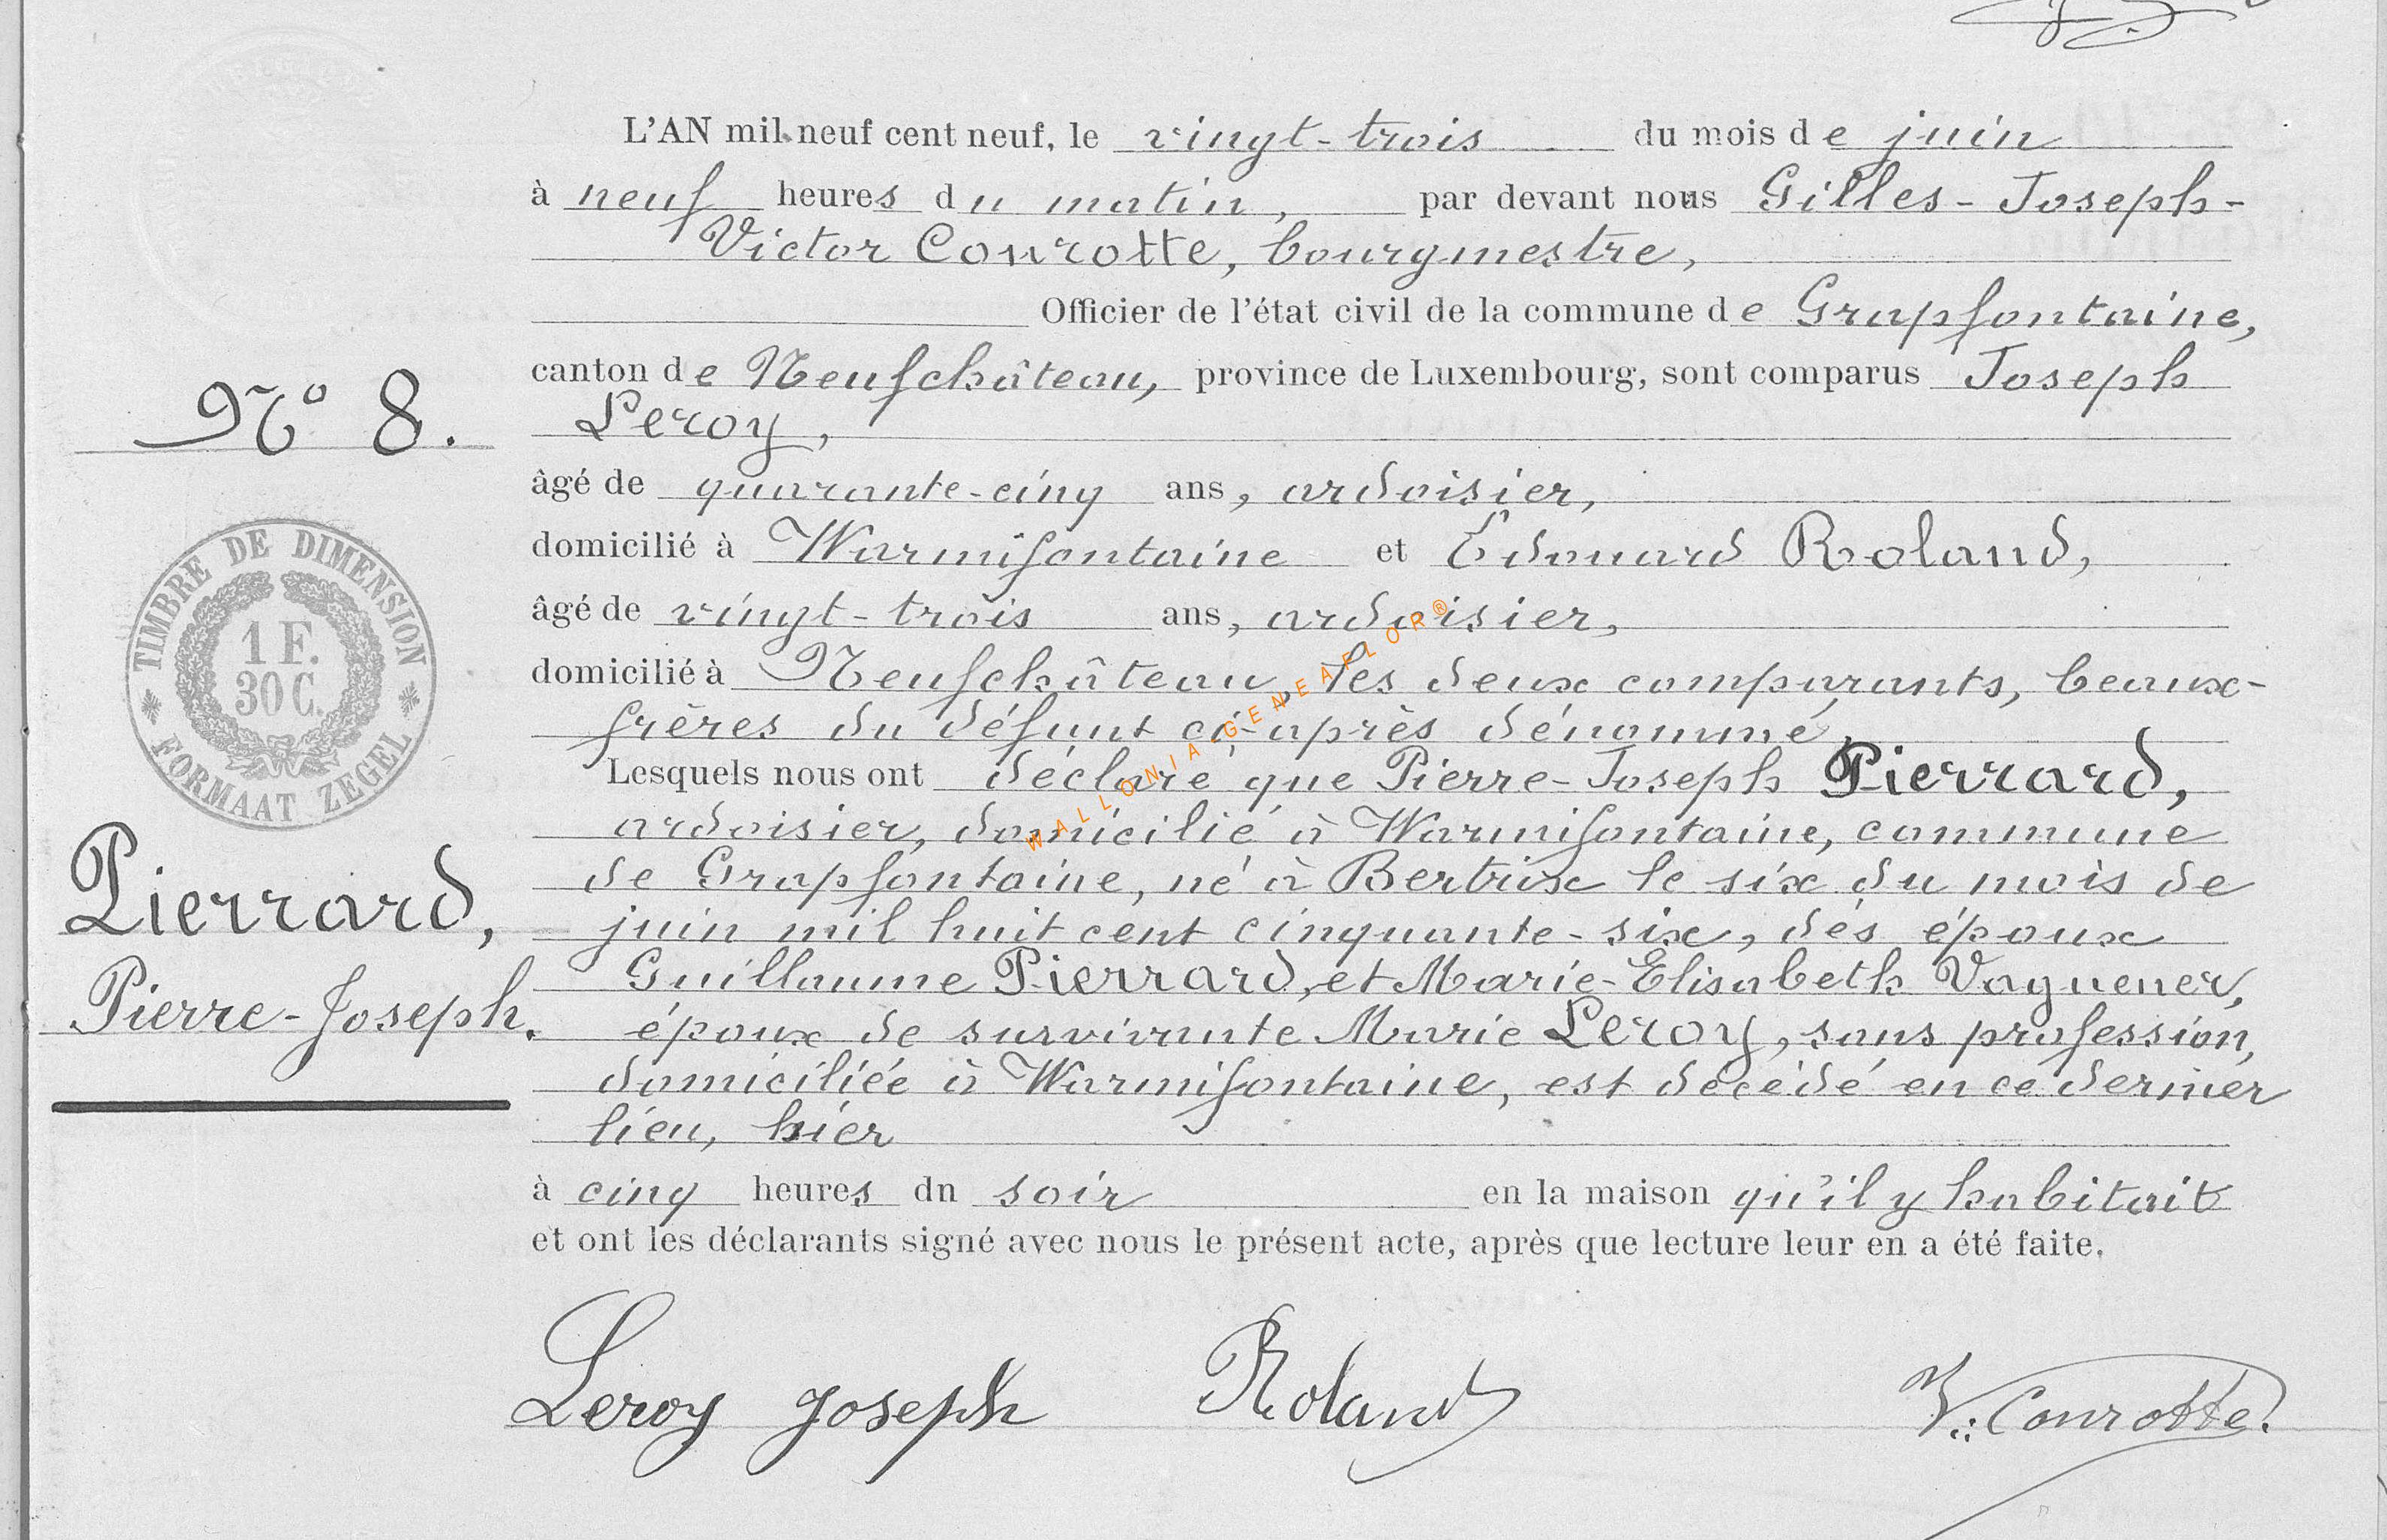 L'AN mil neuf cent neuf, le vingt-trois du mois de juin
à neuf heures du matin, par devant nous Gilles-Joseph-
Victor Conrotte, bourgmestre,
Officier de l'état civil de la commune de Grapfontaine,
canton de Neufchâteau, province de Luxembourg, sont comparus Joseph
Leroy,
âgé de quarante-cinq ans, ardoisier,
domicilié à Warmifontaine et Édouard Roland,
âgé de vingt-trois ans, ardoisier,
domicilié à Neufchâteau, les deux comparants, beaux-
frères du défunt ci-après dénommé,
Lesquels nous ont déclaré que Pierre-Joseph Pierrard,
ardoisier, domicilié à Warmifontaine, commune
de Grapfontaine, né à Bertrix le six du mois de
juin mil huit cent cinquante-six, des époux
Guillaume Pierrard, et Marie-Elisabeth Vaguener,
époux de survivante Marie Leroy, sans profession,
domiciliée à Warmifontaine, est décédé en ce dernier
lieu, hier
à cinq heures du soir en la maison qu'il y habitait
et ont les déclarants signé avec nous le présent acte, après que lecture leur en a été faite.
Leroy Joseph Roland V. Conrotte.
N° 8.
TIMBRE DE DIMENSION
1 F.
30 C.
FORMAAT ZEGEL
Pierrard,
Pierre-Joseph.
WALLONIA-GENEAFLOR®